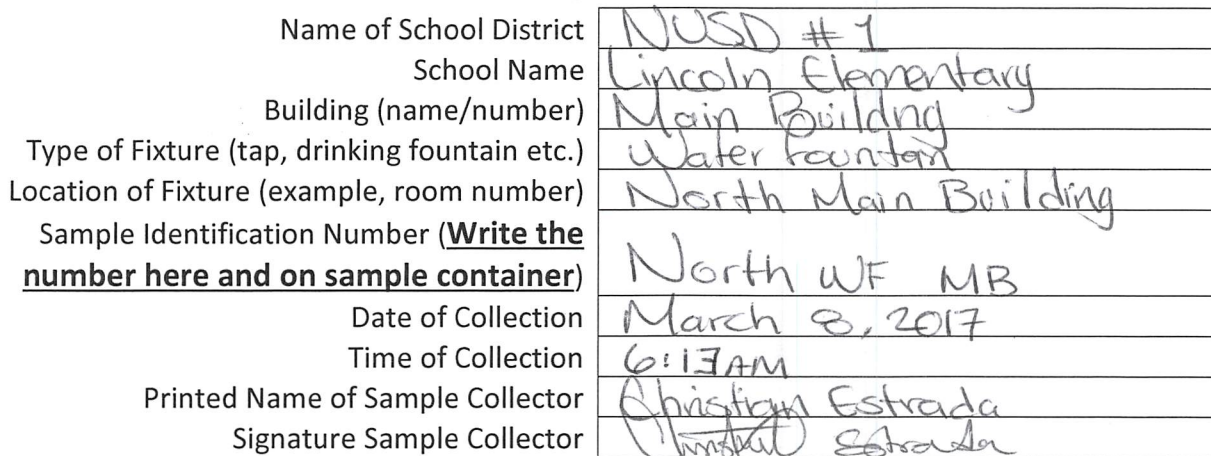 Name of School District NUSD # 1
School Name Lincoln Elementary
Building (name/number) Main Buildng
Type of Fixture (tap, drinking fountain etc.) Water Fountain
Location of Fixture (example, room number) North Main Building
Sample Identification Number (Write the
number here and on sample container) North WF MB
Date of Collection March 8, 2017
Time of Collection 6:13AM
Printed Name of Sample Collector Christian Estrada
Signature Sample Collector Estrada